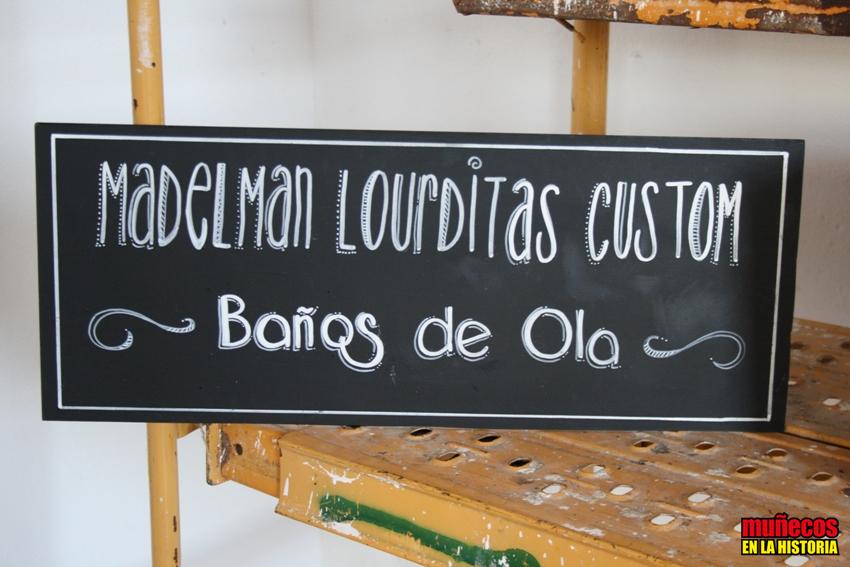 MaDelMan LOURDITas CUSTOM
Baños de Ola
muñecos
EN LA HISTORIA